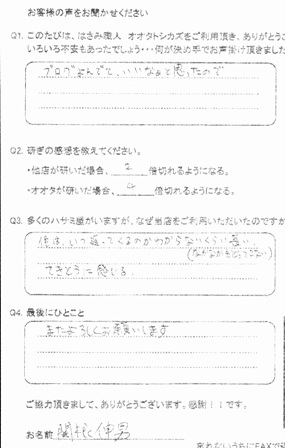 お客様の声をお聞かせください
Q1. このたびは、はさみ職人 オオタトシカズをご利用頂き、ありがとうご
いろいろ不安もあったでしょう・・・何が決め手でお声掛け頂きました
ブログよんでて、いいなぁと思ったので
Q2. 研ぎの感想を教えてください。
・他店が研いだ場合、 2 倍切れるようになる。
・オオタが研いだ場合、 4 倍切れるようになる。
Q3. 多くのハサミ屋がいますが、なぜ当店をご利用いただいたのですか
他は、いつ返ってくるのかわからないくらい長い、
(なかなかもどってこない)
てきとうに感じる。
Q4. 最後にひとこと
またよろしくお願いします
ご協力頂きまして、ありがとうございます。感謝！！です。
お名前 関根 伸男
忘れないうちにFAXで